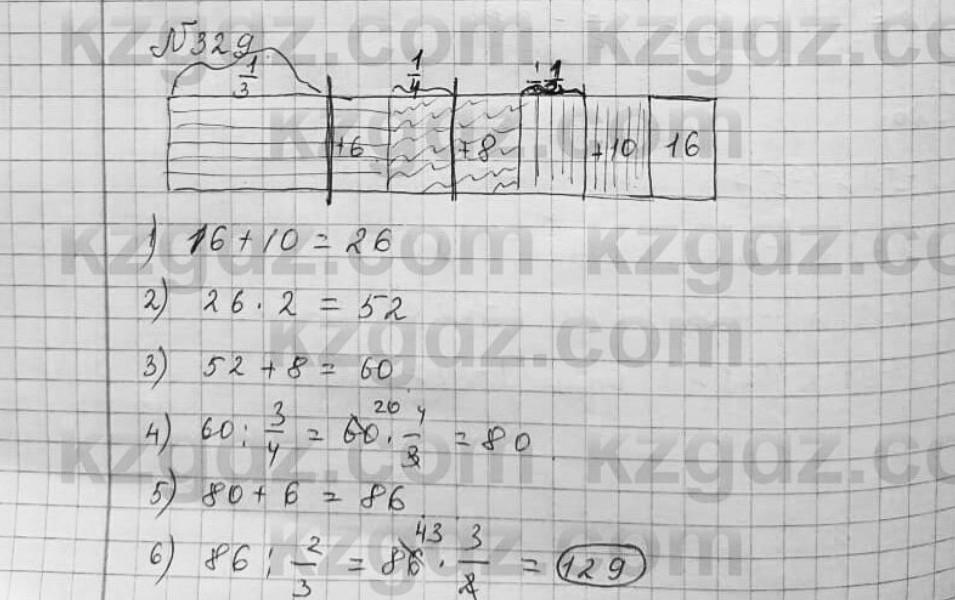 N329
1/3 1/4 1/2
+6 +8 +10 16
1) 16 + 10 = 26
2) 26 · 2 = 52
3) 52 + 8 = 60
4) 60 : 3/4 = 60 · 4/3 = 80
20
5) 80 + 6 = 86
6) 86 : 2/3 = 86 · 3/2 = 129
43
kzgdz.com